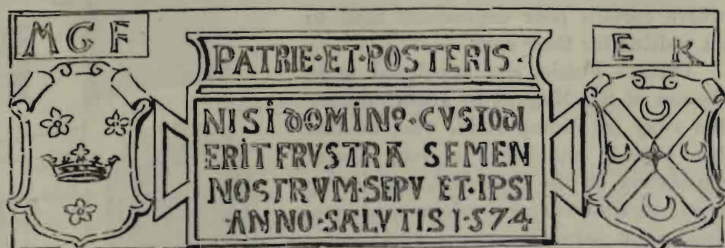 M G F
PATRIE·ET·POSTERIS·
E K
NISI DOMIN9·CVSTODI
ERIT FRVSTRA SEMEN
NOSTRVM·SEPV ET·IPSI
·ANNO·SALVTIS 1·574